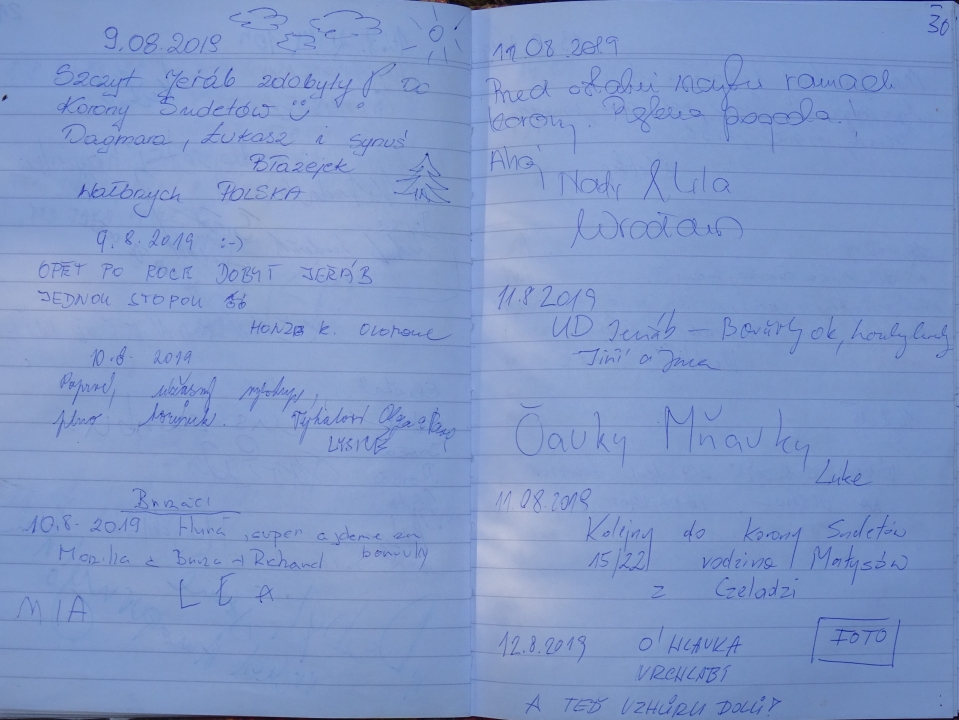 9.08.2019
Szczyt Jeřáb zdobyty! Do
Korony Sudetów
Dagmara, Łukasz i synuś
Błażejek
Wałbrzych POLSKA
9.8.2019 :-)
OPĚT PO ROCE DOBYT JEŘÁB
JEDNOU STOPOU
HONZA K. Olomouc
10.8. 2019
Poprvé, úžasný výstup,
plno borůvek. Týkalovi Olga a
LYSICE
Burzáci
10.8. 2019 Hurá, super a jdeme na
borůvky
a Burza + Richard
LEA
MIA
30
11.08.2019
Przed w ramach
korony. Piękna pogoda!
Ahoj
& Lila
Wrocław
11.8.2019
UD Jeřáb – Borůvky ok, houby
Jiří a
Čauky Mňauky
Luke
11.08.2019
Kolejny do korony Sudetów
15/22 rodzina Matysów
z Czeladzi
12.8.2019 O'HLAVKA FOTO
VRCHLABÍ
A TEĎ VZHŮRU DOLŮ